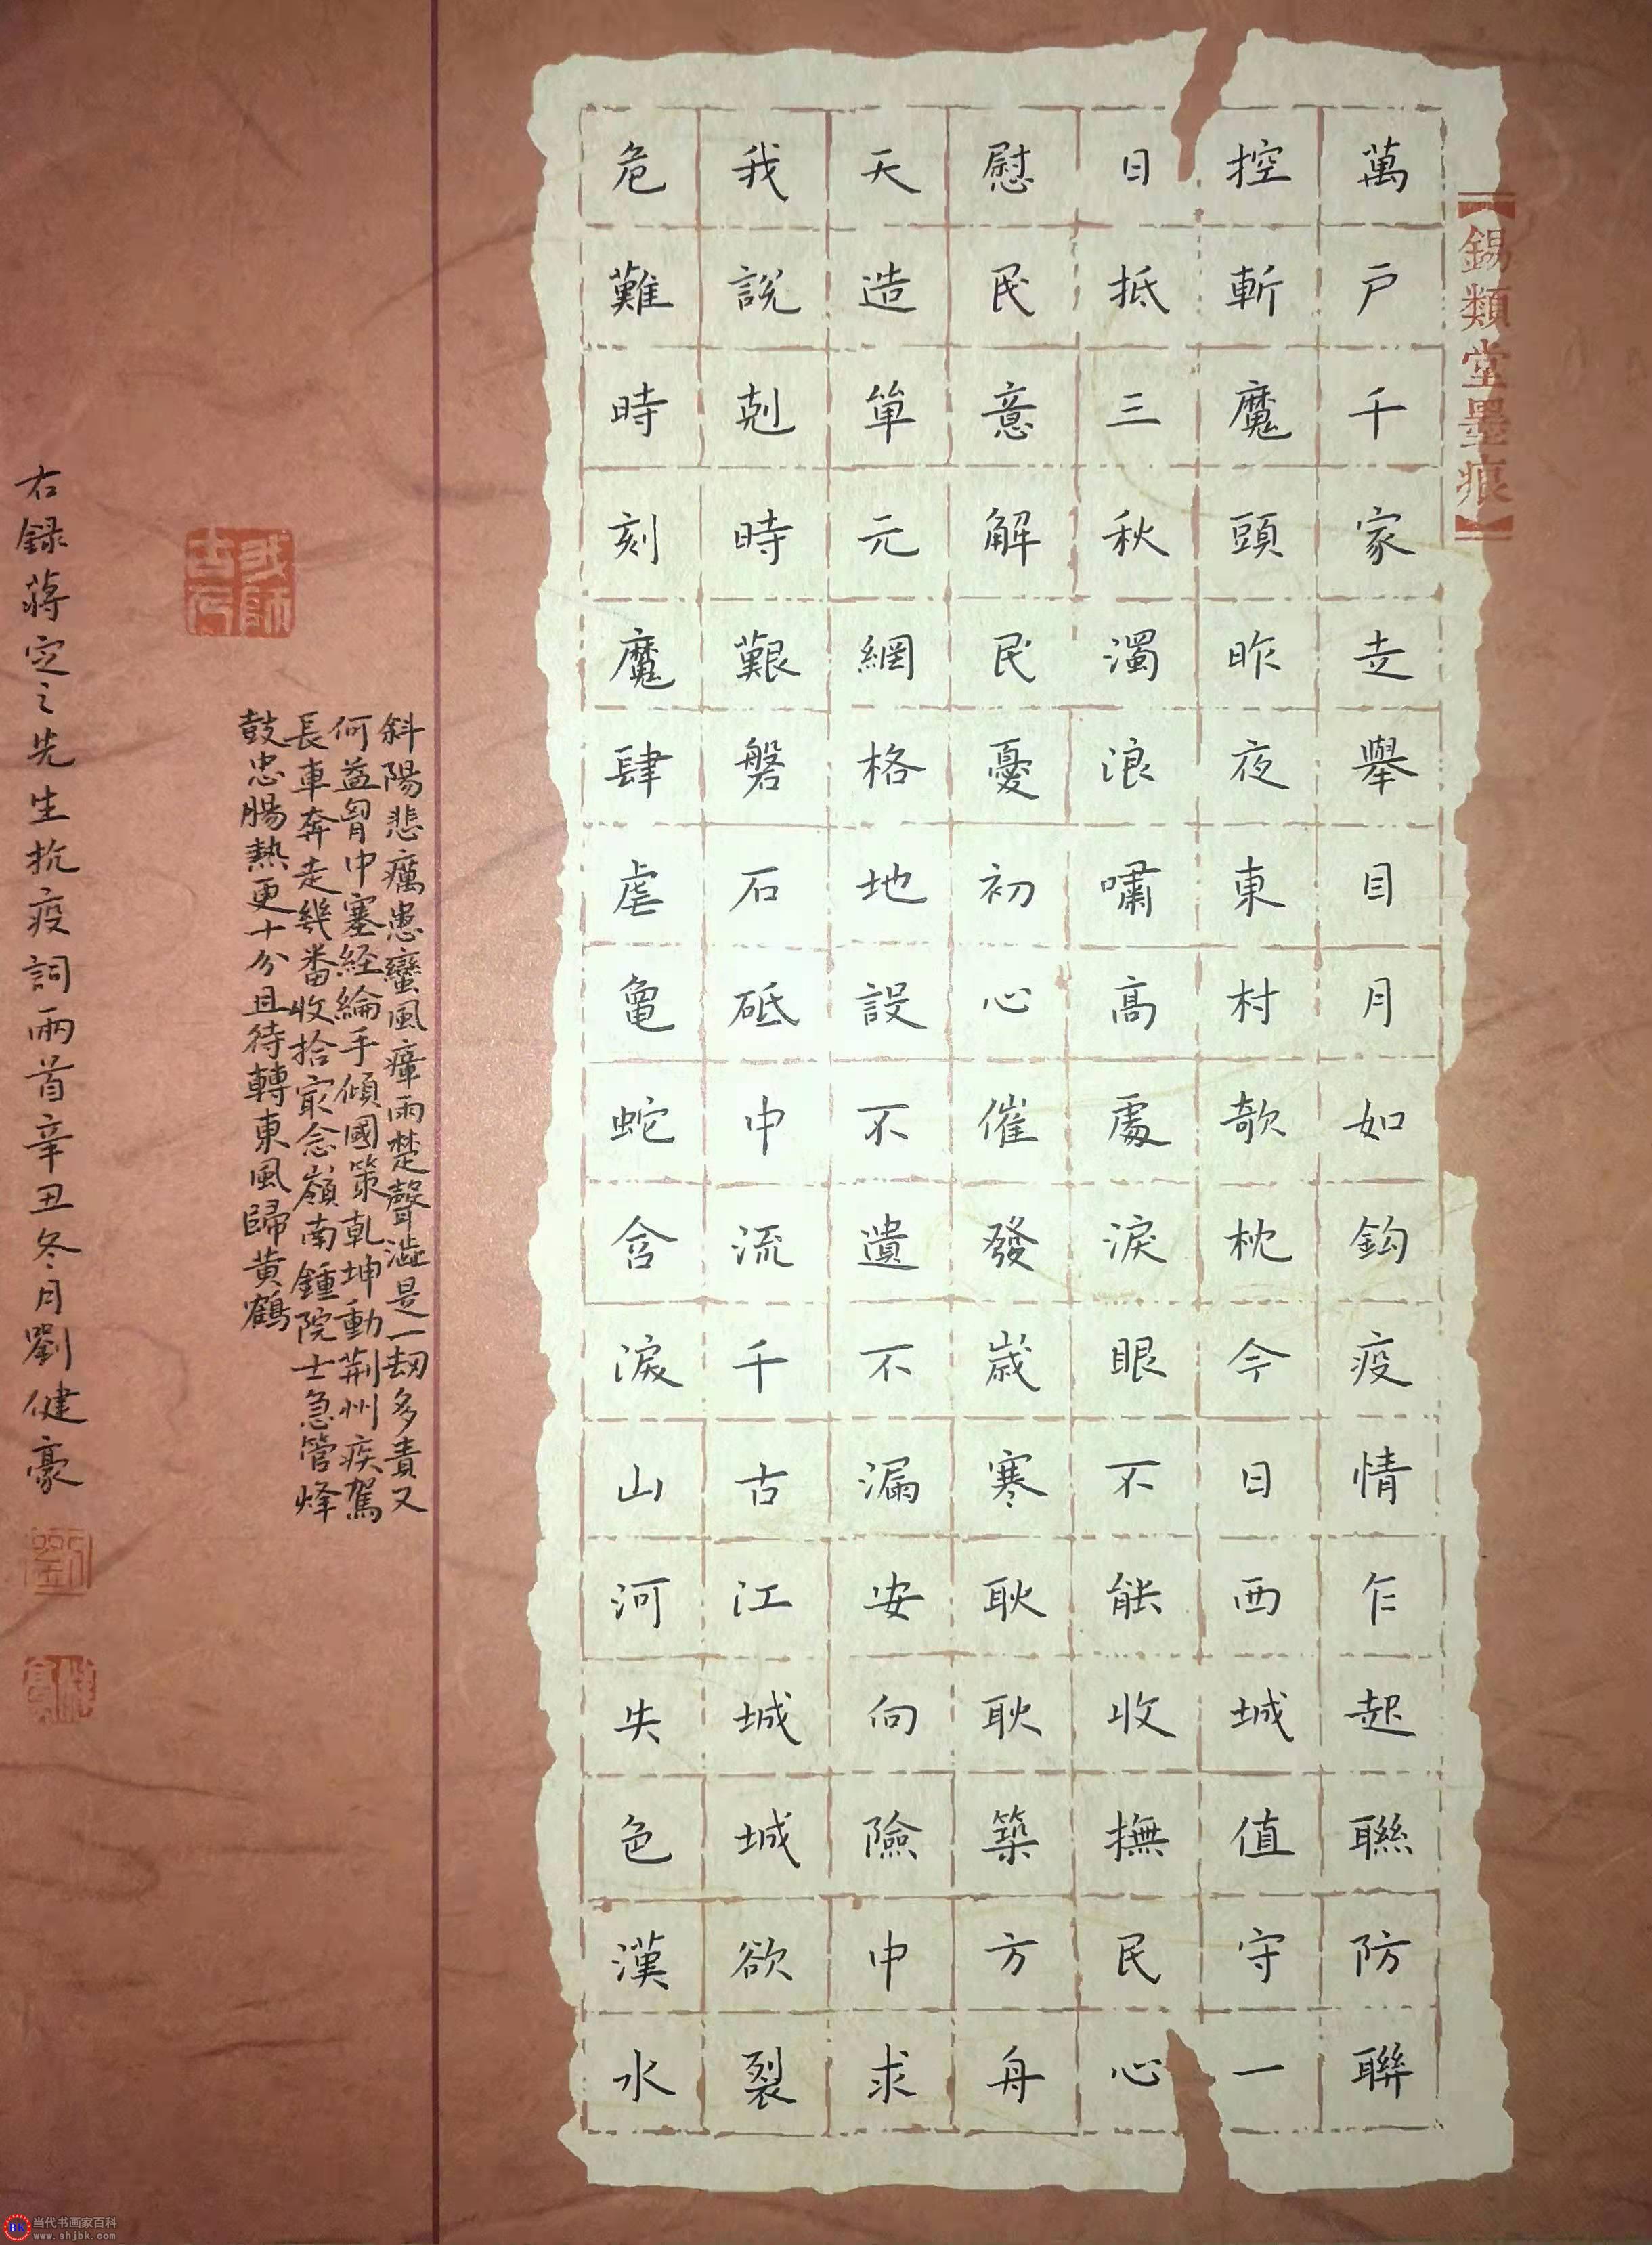 【錫類堂墨痕】
萬戶千家走舉目月如鈎疫情乍起聯防聯
控斬魔頭昨夜東村欹枕今日西城值守一
日抵三秋濁浪嘯高處淚眼不能收撫民心
慰民意解民憂初心催發歲寒耿耿築方舟
天造單元網格地設不遺不漏安向險中求
我說剋時艱磐石砥中流千古江城城欲裂
危難時刻魔肆虐龜蛇含淚山河失色漢水
斜陽悲癘患蠻風瘴雨楚聲澁是一劫多責又
何益胷中塞經綸手傾國策乾坤動荆州疾駕
長車奔走幾番收拾最念嶺南鍾院士急管烽
鼓忠腸熱更十分且待轉東風歸黃鶴
右録蔣定之先生抗疫詞兩首辛丑冬月劉健豪
当代书画家百科
www.shjbk.com